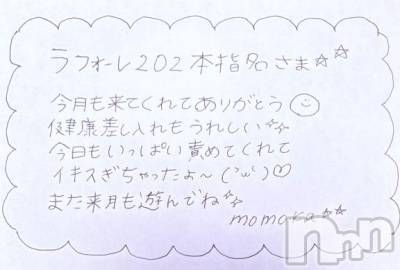 ラフォーレ202本指名さま☆☆
今月も来てくれてありがとう☺
健康差し入れもうれしい☆☆
今日もいっぱい責めてくれて
イキスぎちゃったよ〜('ω')♡
また来月も遊んでね☆☆